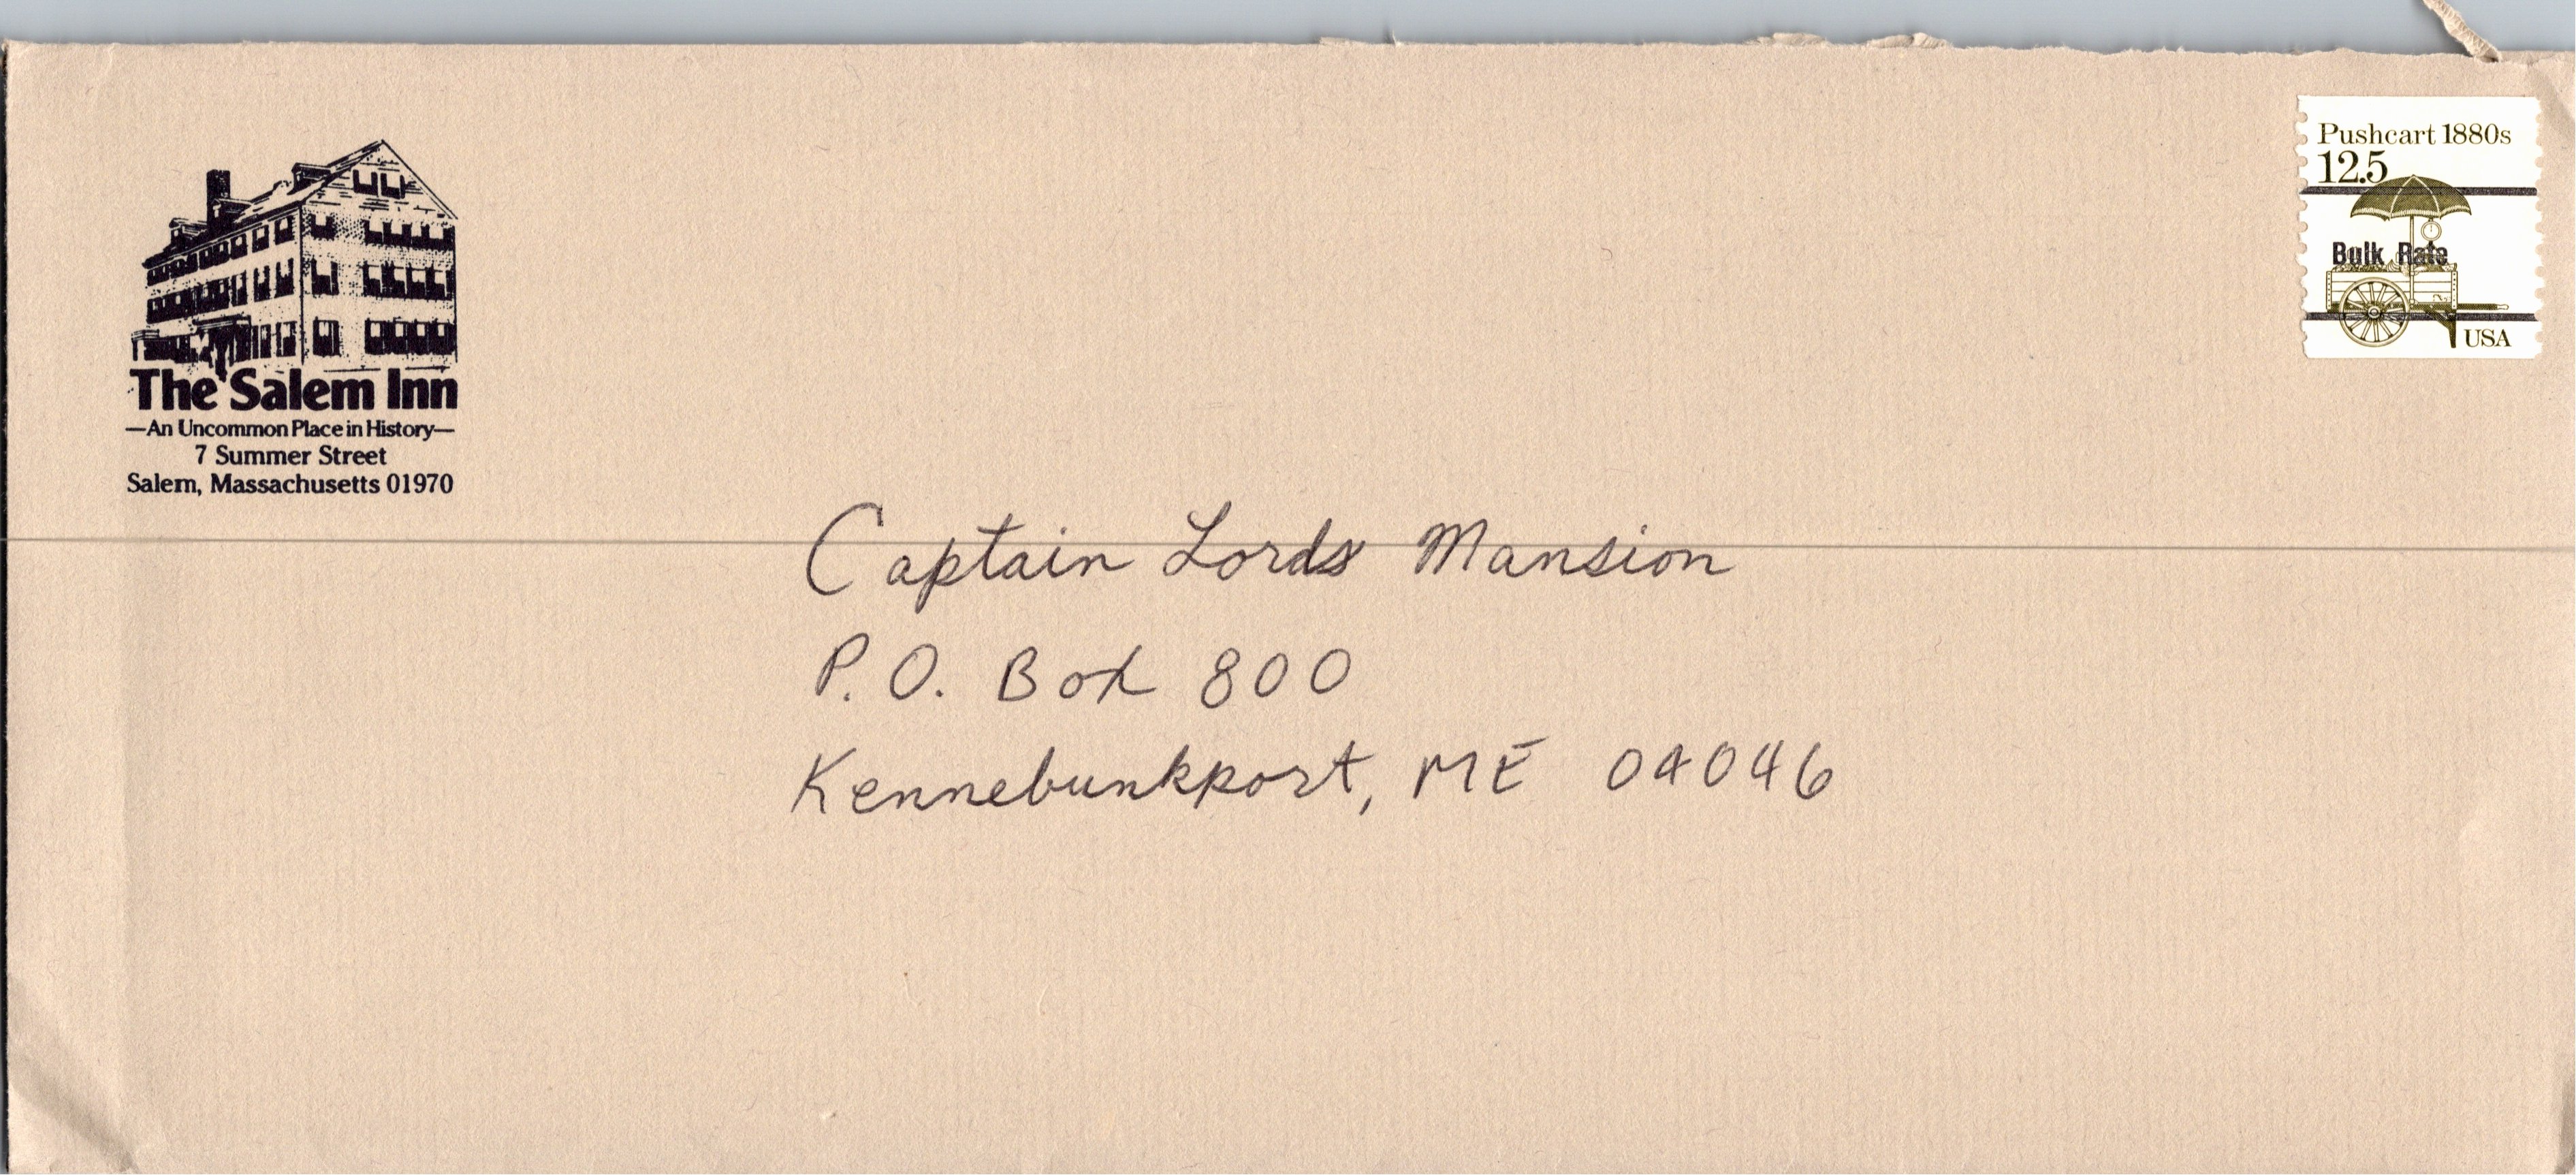 The Salem Inn
—An Uncommon Place in History—
7 Summer Street
Salem, Massachusetts 01970
Pushcart 1880s
12.5
Bulk Rate
USA
Captain Lords Mansion
P.O. Box 800
Kennebunkport, ME 04046